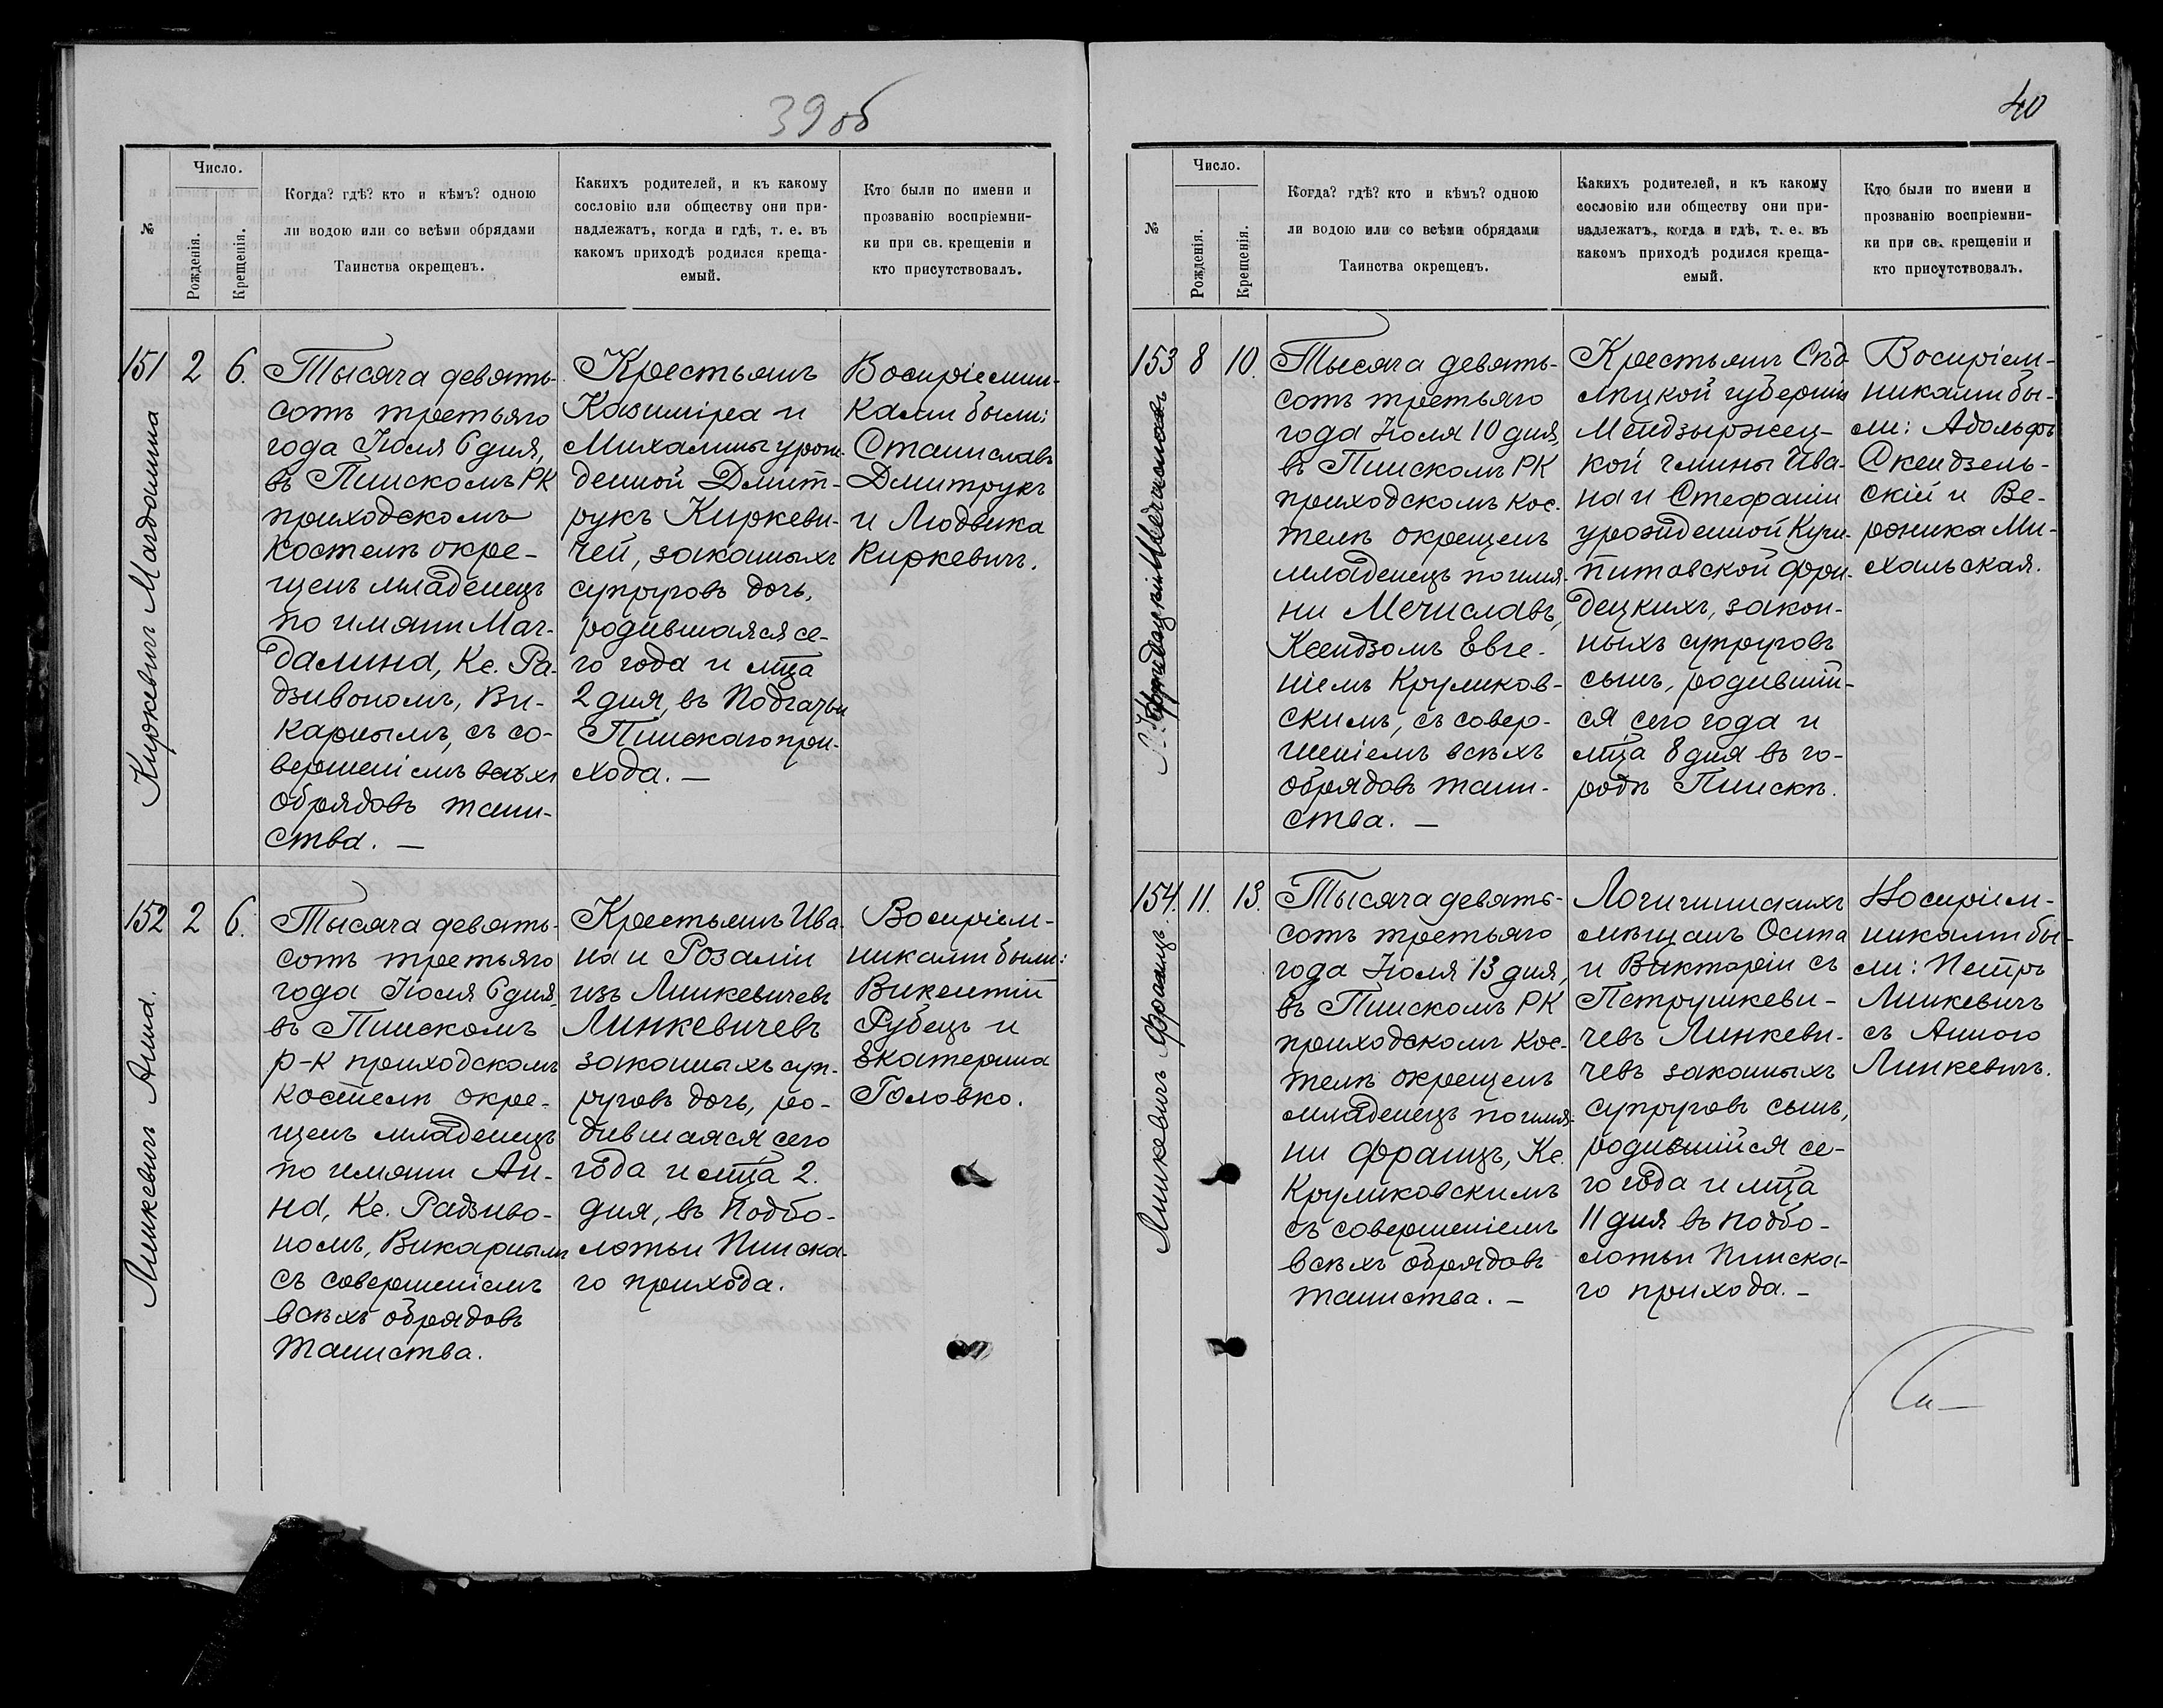 39 об
№
Число.
Рожденія.
Крещенія.
Когда? гдѣ? кто и кѣмъ? одною
ли водою или со всѣми обрядами
Таинства окрещенъ.
Какихъ родителей, и къ какому
сословію или обществу они при-
надлежатъ, когда и гдѣ, т. е. въ
какомъ приходѣ родился креща-
емый.
Кто были по имени и
прозванію воспріемни-
ки при св. крещеніи и
кто присутствовалъ.
151
2
6.
Киркевичъ Магдалина
Тысяча девять-
сотъ третьяго
года Іюля 6 дня,
въ Пинскомъ РК
приходскомъ
костелѣ окре-
щенъ младенецъ
по имяни Маг-
далина, Кс. Ра-
дзивономъ, Ви-
карнымъ, съ со-
вершеніемъ всѣхъ
обрядовъ таин-
ства. —
Крестьянъ
Казиміра и
Михалины урож-
денной Дмит-
рукъ Киркеви-
чей, законныхъ
супруговъ дочь,
родившаяся се-
го года и мца
2 дня, въ Подгачьи
Пинскаго при-
хода. —
Воспріемни-
ками были:
Станиславъ
Дмитрукъ
и Людвика
Киркевичъ.
152
2
6.
Линкевичъ Анна.
Тысяча девять-
сотъ третьяго
года Іюля 6 дня,
въ Пинскомъ
р-к приходскомъ
костелѣ окре-
щенъ младенецъ
по имяни Ан-
на, Кс. Радзиво-
номъ, Викарнымъ
съ совершеніемъ
всѣхъ обрядовъ
таинства.
Крестьянъ Ива-
на и Розаліи
изъ Линкевичевъ
Линкевичевъ
законныхъ суп-
руговъ дочь, ро-
дившаяся сего
года и мца 2.
дня, въ Подбо-
лотьи Пинска-
го прихода.
Воспріем-
никами были:
Викентій
Рубецъ и
Екатерина
Головко.
40
№
Число.
Рожденія.
Крещенія.
Когда? гдѣ? кто и кѣмъ? одною
ли водою или со всѣми обрядами
Таинства окрещенъ.
Какихъ родителей, и къ какому
сословію или обществу они при-
надлежатъ, когда и гдѣ, т. е. въ
какомъ приходѣ родился креща-
емый.
Кто были по имени и
прозванію воспріемни-
ки при св. крещеніи и
кто присутствовалъ.
153
8
10.
Мечиславъ
Тысяча девять-
сотъ третьяго
года Іюля 10 дня,
въ Пинскомъ РК
приходскомъ кос-
телѣ окрещенъ
младенецъ по имя-
ни Мечиславъ,
Ксендзомъ Евге-
ніемъ Круликов-
скимъ, съ совер-
шеніемъ всѣхъ
обрядовъ таин-
ства. —
Крестьянъ Сѣд-
лецкой губерніи
Мендзыржец-
кой гмины Ива-
на и Стефаніи
урожденной Куч-
питовской Фри-
децкихъ, закон-
ныхъ супруговъ
сынъ, родивший-
ся сего года и
мца 8 дня въ го-
родѣ Пинскѣ.
Воспріем-
никами бы-
ли: Адольфъ
Скендзель-
скій и Ве-
роника Ми-
хальская.
154.
11.
13.
Линкевичъ Францъ
Тысяча девять-
сотъ третьяго
года Іюля 13 дня,
въ Пинскомъ РК
приходскомъ кос-
телѣ окрещенъ
младенецъ по имя-
ни Францъ, Кс.
Круликовскимъ
съ совершеніемъ
всѣхъ обрядовъ
таинства. —
Логишинскихъ
мѣщанъ Осипа
и Викторіи съ
Петрушкеви-
чевъ Линкеви-
чевъ законныхъ
супруговъ сынъ,
родившійся се-
го года и мца
11 дня въ Подбо-
лотьи Пинска-
го прихода. —
Воспріем-
никами бы-
ли: Петръ
Линкевичъ
съ Анною
Линкевичъ.